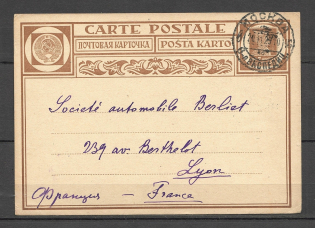 CARTE POSTALE
ПОЧТОВАЯ КАРТОЧКА
POŜTA KARTO
МОСКВА
Societé automobile Berliet
239 av. Berthelot
Lyon
Франция — France